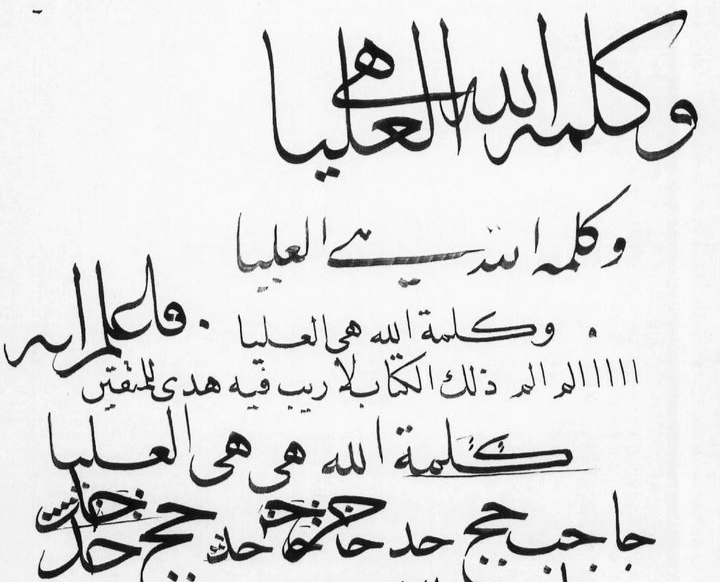 وكلمه الله هي العليا
وكلمه الله هي العليا
وكلمة الله هى العليا
فاعلم انه
ااااا الم الم ذلك الكتاب لا ريب فيه هدى للمتقين
كلمة الله هى هى العليا
حا حب حج حد حا
حج حد